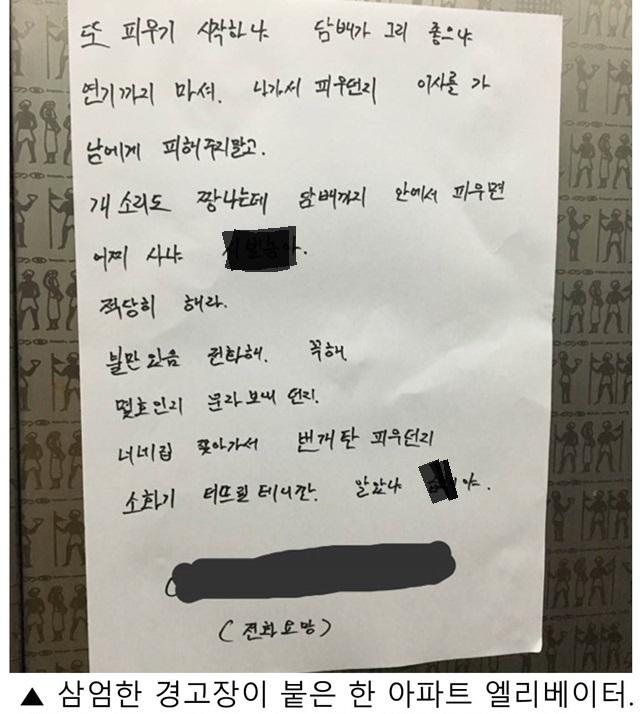 또 피우기 시작하냐 담배가 그리 좋으냐
연기까지 마셔. 나가서 피우던지 이사를 가
남에게 피해주지말고.
개 소리도 짱나는데 담배까지 안에서 피우면
어찌 사냐
적당히 해라.
불만있음 전화해. 꼭해.
몇호인지 문자 보내 던지.
너네집 쫓아가서 번개탄 피우던지
소화기 터뜨릴테니깐. 알았냐 야.
(전화요망)
▲ 삼엄한 경고장이 붙은 한 아파트 엘리베이터.